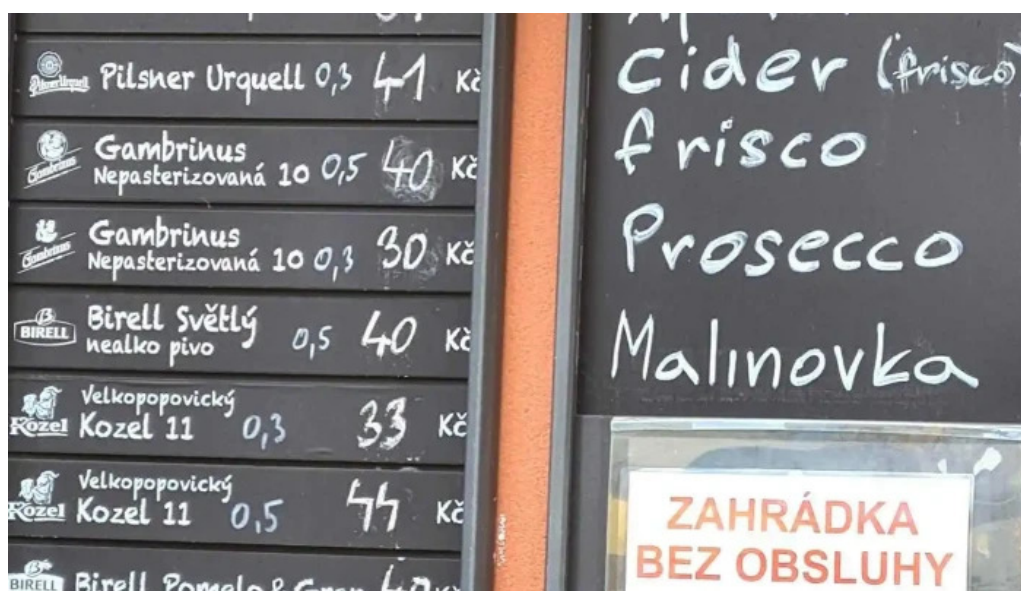 Pilsner Urquell 0,3 41 Kč
Gambrinus
Nepasterizovaná 10 0,5 40 Kč
Gambrinus
Nepasterizovaná 10 0,3 30 Kč
BIRELL
Birell Světlý
nealko pivo 0,5 40 Kč
Velkopopovický
Kozel Kozel 11 0,3 33 Kč
Velkopopovický
Kozel Kozel 11 0,5 44 Kč
BIRELL Birell Pomelo & 40 Kč
Cider (frisco)
frisco
Prosecco
Malinovka
ZAHRÁDKA
BEZ OBSLUHY